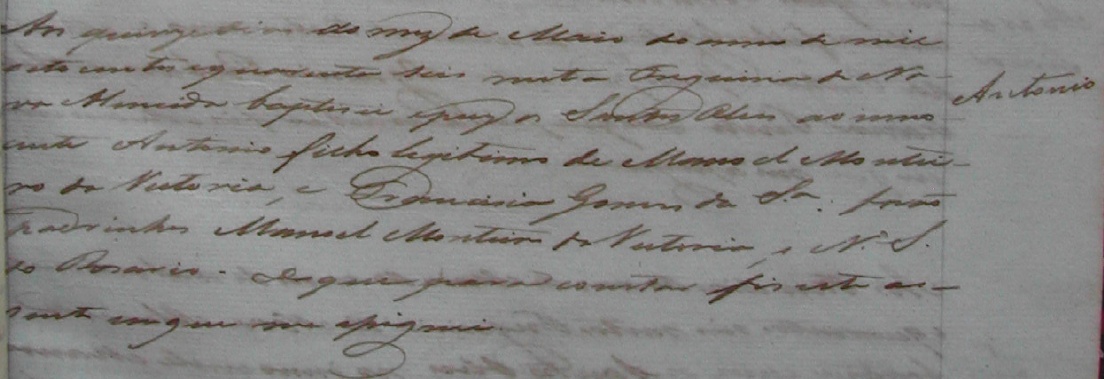 Aos quinze dias do mez de Maio do anno de mil
oito centos e quarenta e seis nesta Freguesia de No-
va Almeida baptisei e puz os Santos Oleos ao inno
cente Antonio filho legitimo de Manoel Montei-
ro da Victoria, e Francisca Gomes da Sa. forão
padrinhos Manoel Monteiro da Victoria, e N. S.
do Rosario. Do que para constar fis este as-
sento em que me
Antonio